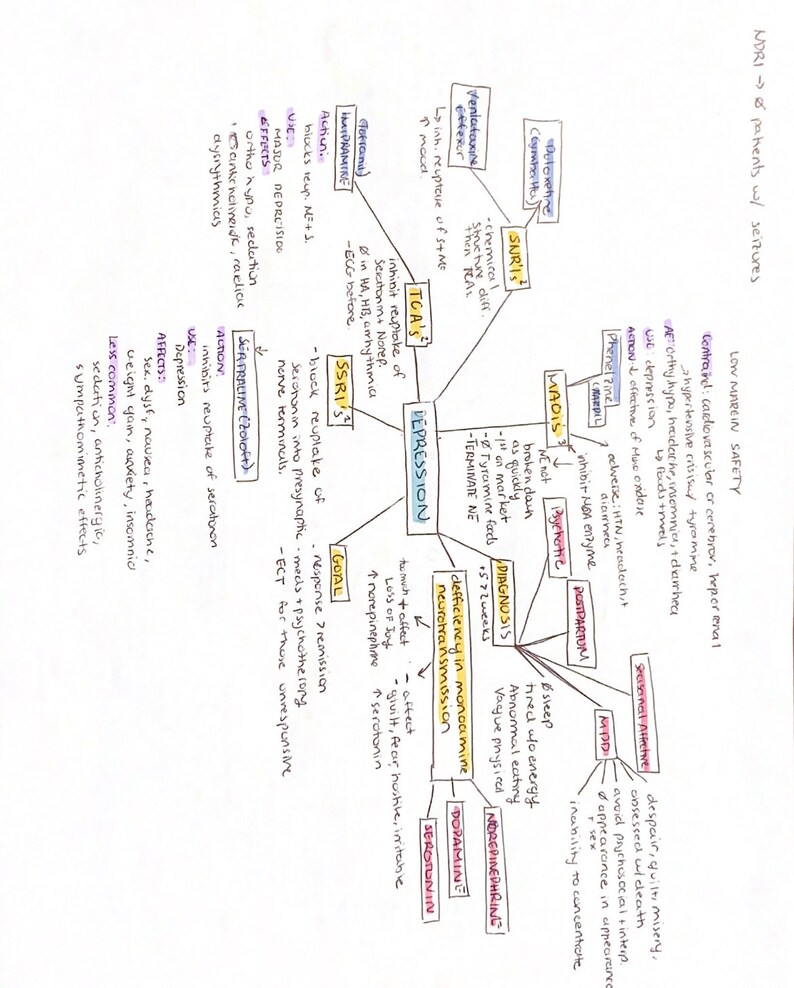 NDRI → Ø patients w/ seizures
LOW MARGIN SAFETY
Contraind: cardiovascular or cerebrov, hep or renal
↳ hypertensive crisis w/ tyramine
AE: orthyhypo, headache, insomnia, + diarrhea
↳ foods + meds
USE: depression
ACTION:
Phenelzine
(NARDIL)
↗ adverse: HTN, headach, +
diarrhea
inhibit
enzyme
MAOi's 3
NE not
broken down
as quickly
- 1st on market
- Ø Tyramine foods
- TERMINATE NE
(Cymbalta)
Venlafaxine
Effexor
↳ inh. reuptake of S + NE
↑ mood.
SNRI's 2
- chemical
structure diff.
then TCAs.
TCA's 2
inhibit reuptake of
serotonin + Norep.
Ø in HA, HB, arrhythmia
- ECG before.
(Tofranil)
IMIPRAMINE
Action:
blocks reup. NE + S.
USE:
MAJOR DEPRESSION
EFFECTS:
ortho hypo, sedation
anticholinergic, cardiac
dysrythmias
DEPRESSION
SSRI's 2
- block reuptake of
serotonin into presynaptic
nerve terminals.
SERTRALINE (Zoloft)
ACTION:
inhibits reuptake of serotonin
USE:
Depression
AFFECTS:
sex. dysf, nausea, headache,
weight gain, anxiety, insomnia
Less common:
sedation, anticholinergic,
sympathomimetic effects
GOAL
- response > remission
- meds + psychotherapy
- ECT for those unresponsive
DIAGNOSIS
+5 > 2 weeks
Psychotic
POSTPARTUM
Seasonal Affective
MDD
despair, guilt, misery,
obsessed w/ death
avoid psychosocial + interp.
Ø appearance in appearance
+ sex
inability to concentrate
Ø sleep
tired w/o energy
Abnormal eating
Vague physical
defficiency in monoamine
neurotransmission
affect
Loss of Joy
↑ norepinephrine
- affect
- guilt, fear, hostile, irritable
↑ serotonin
NOREPINEPHRINE
DOPAMINE
SEROTONIN